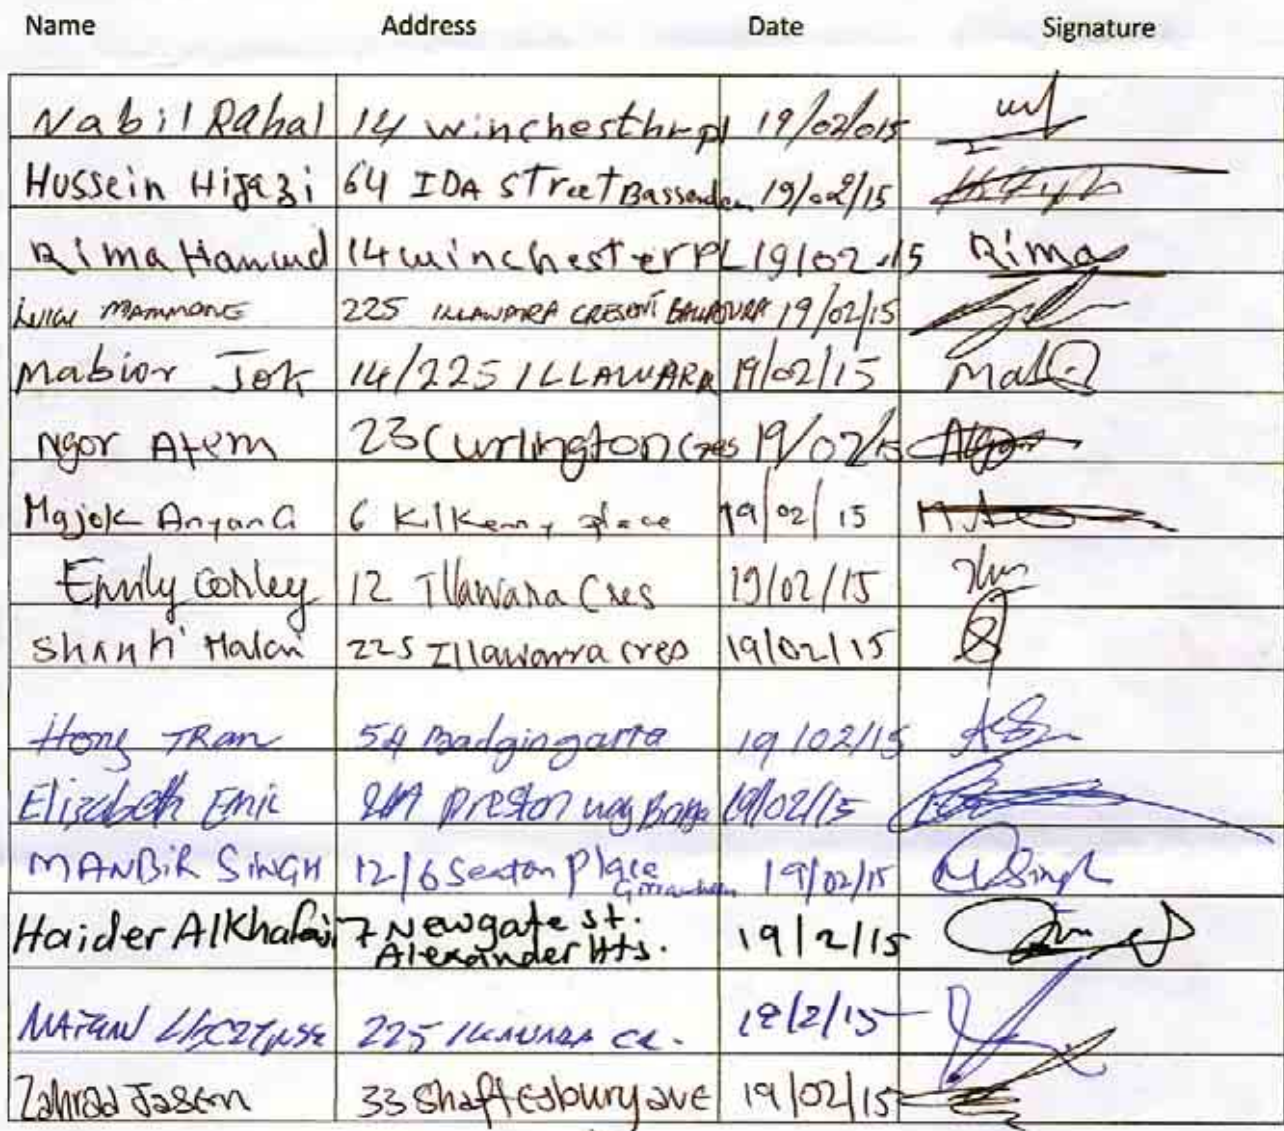 Name Address Date Signature
Nabil Rahal 14 winchesthr pl 19/02/015
Hussein Hijazi 64 IDA Street Bassenden 19/02/15
Rima Hamud 14 winchester PL 19/02/15 Rima
MAMMONE 225 ILLAWARA CRESENT 19/02/15
Mabior Jok 14/225 ILLAWARA 19/02/15
Ngor Atem 23 Curlington Cres 19/02/15
Majok Anyang 6 Kilkenny place 19/02/15
Emily Conley 12 Illawara Cres 19/02/15
Shanti 225 Illawarra cres 19/02/15
Hong TRan 5A Badgingarra 19/02/15
Elizabeth Emic Preston way 19/02/15
MANBIR SINGH 12/6 Seaton Place 19/02/15 Singh
Haider AlKhafaji 7 Newgate st. 19/2/15
Alexander Hts.
225 ILLAWARA CR. 19/2/15
Zahraa Jasem 33 Shaftesbury ave 19/02/15